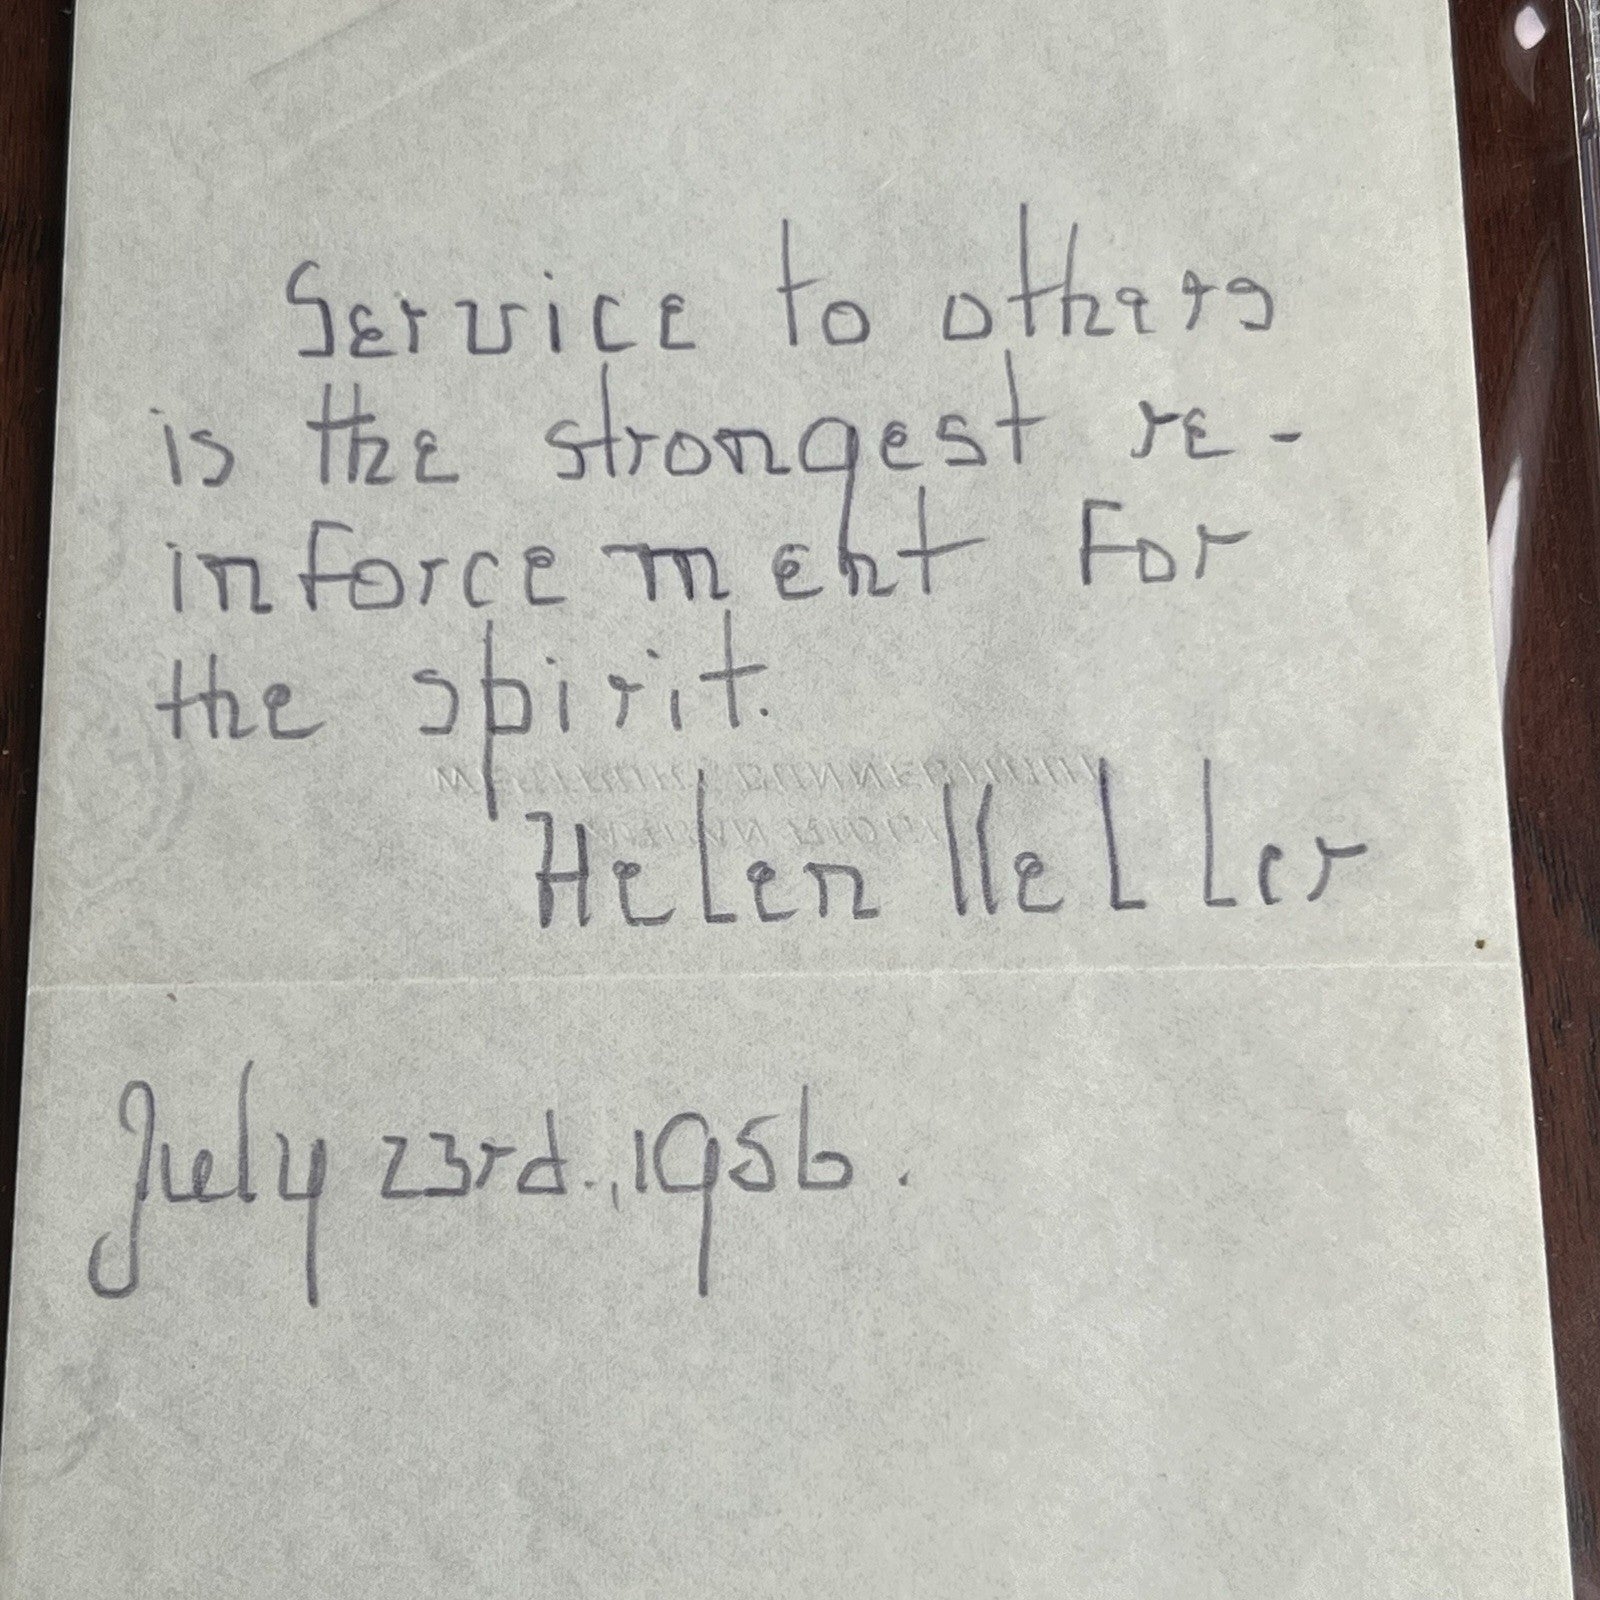 Service to others
is the strongest re-
inforcement for
the spirit.
Helen Keller
July 23rd., 1956.